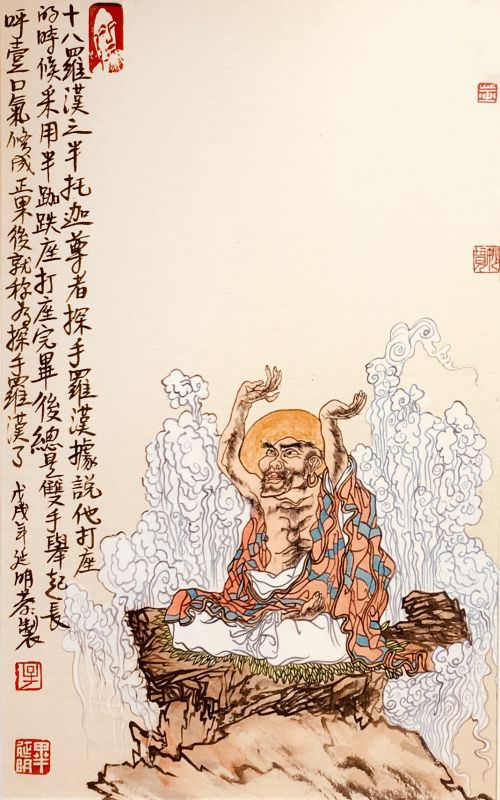 十八羅漢之半托迦尊者探手羅漢據說他打座
的時候采用半跏趺座打座完畢後總是雙手舉起長
呼壹口氣修成正果後就称為探手羅漢了 戊戌年延明恭製
畢延明